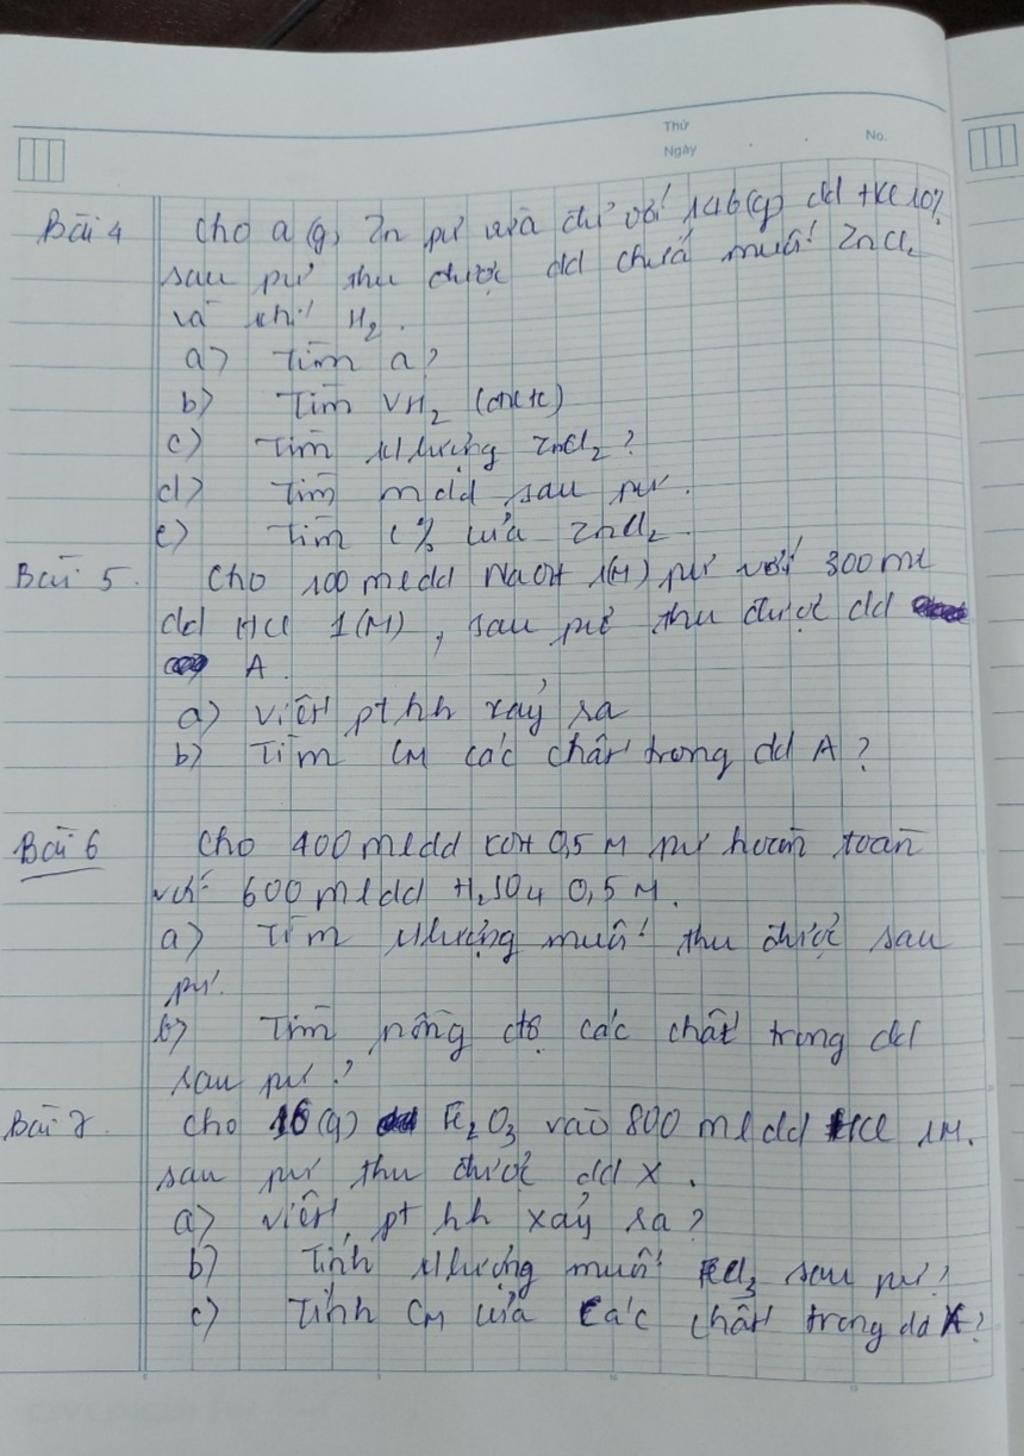 Thứ
Ngày
No.
Bài 4 Cho a (g) Zn pư vừa đủ với 146(g) dd HCl 10%
sau pư thu được dd chứa muối ZnCl2
và khí H2.
a) Tìm a?
b) Tìm VH2 (đktc)
c) Tìm khối lượng ZnCl2?
d) Tìm mdd sau pư.
e) Tìm C% của ZnCl2.
Bài 5. Cho 100 ml dd NaOH 1(M) pư với 300 ml
dd HCl 1(M), sau pư thu được dd
A.
a) Viết pthh xảy ra
b) Tìm CM các chất trong dd A?
Bài 6 Cho 400 ml dd KOH 0,5 M pư hoàn toàn
với 600 ml dd H2SO4 0,5 M.
a) Tìm khối lượng muối thu được sau
pư.
b) Tìm nồng độ các chất trong dd
sau pư?
Bài 7. Cho 16(g) Fe2O3 vào 800 ml dd HCl 1M.
sau pư thu được dd X.
a) Viết pt hh xảy ra?
b) Tính khối lượng muối FeCl3 sau pư?
c) Tính CM của các chất trong dd X?